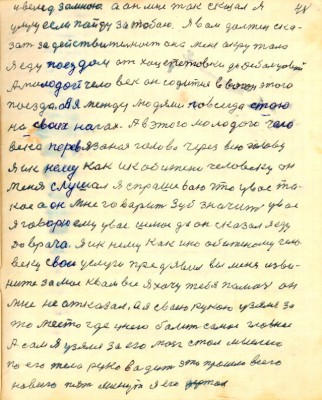 и вслед замною. а он мне так сказал Я
умру если пайду за тобою. Я вам должен ска-
зать за действительност она меня окружало
Я еду поездом от до дебальцовой
А молодой человек он садится в вагон этого
поезда. А Я между людями повседа стою
на своих нагах. А в этого молодого чело
века перевязаная голова через всю голову
Я ик нему как ик обиженому человеку он
меня слушал Я спрашеваю это у вас та-
кое а он мне говарит Зуб значит у вас
Я говорю ему у вас он сказал я еду
до врача. Я ик нему как ико обиженому чело
веку свои услуги предявил вы меня изви-
ните за мои Я хочу тебя помоч он
мне не атказал, а я своею рукою узялся за
то место где у него балит самое главное
А сам Я узялся за его мозг стал мыслено
по его тела рукою вадить это прошло всего
навсего пят минут Я его